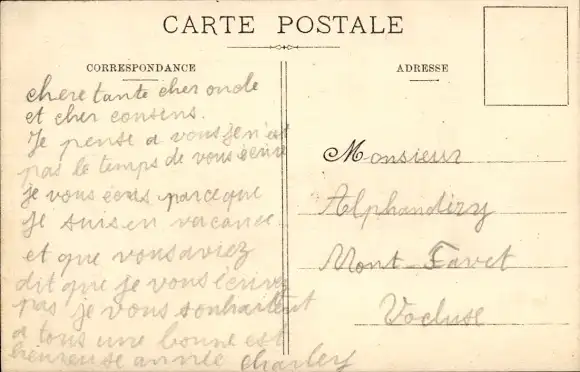 CARTE POSTALE
CORRESPONDANCE
chere tante cher oncle
et cher cousins.
Je pense a vous je n'est
pas le temps de vous écrire
je vous écris parce que
je suis en vacance
et que vous aviez
dit que je vous écrivez
pas je vous souhaitent
a tous une bonne est
heureuse année Charley
ADRESSE
Monsieur
Alphandéry
Mont-Favet
Vocluse